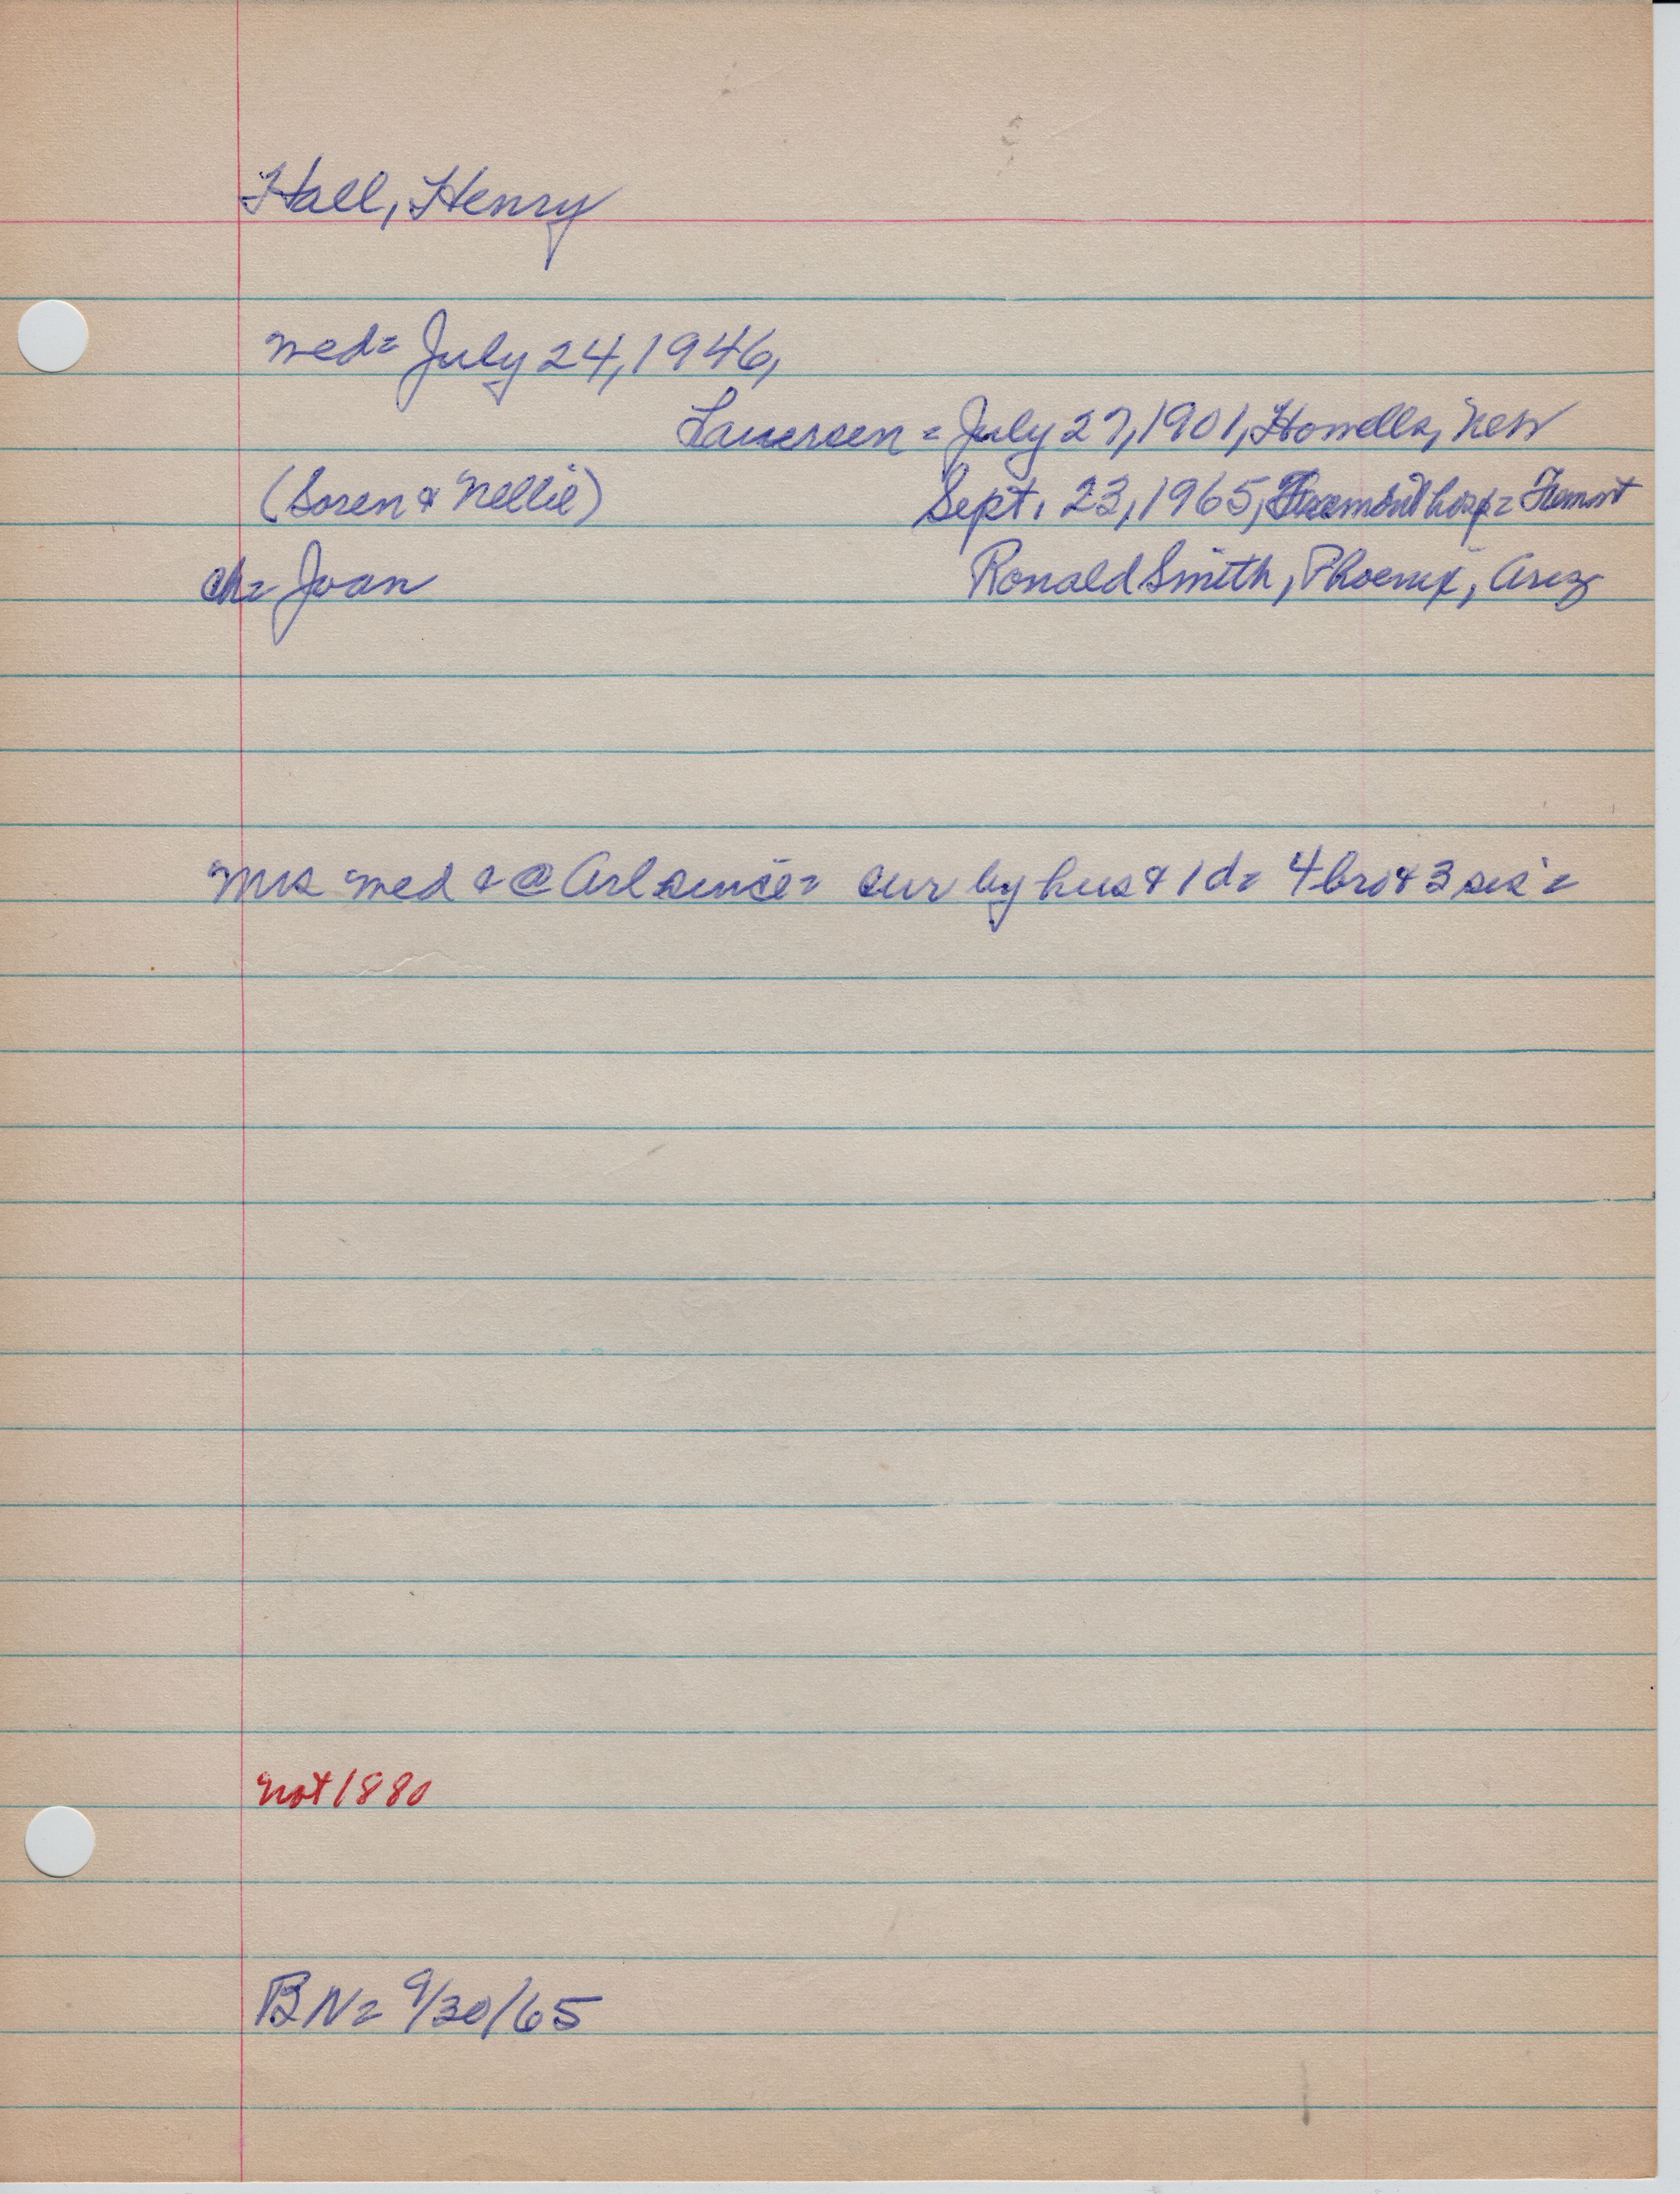 Hall, Henry
wed= July 24, 1946,
Lauersen = July 27, 1901, Howells, Neb
(Soren & Nellie) Sept. 23, 1965, hosp= Fremont
ch= Joan Ronald Smith, Phoenix, Ariz
Mrs wed & @ Arl since= sur by hus & 1 d= 4 bro & 3 sis=
not 1880
BN= 9/30/65